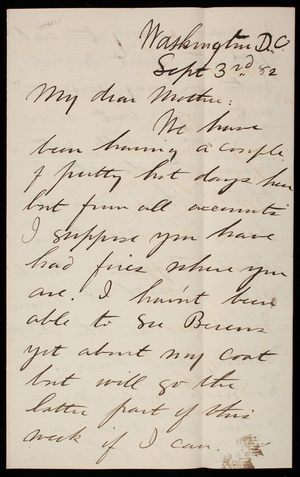 Washington D.C.
Sept 3rd 82
My dear Mother:
We have
been having a couple
of pretty hot days here
but from all accounts
I suppose you have
had fires where you
are. I hav'nt been
able to see
yet about my coat
but will go the
latter part of this
week if I can.